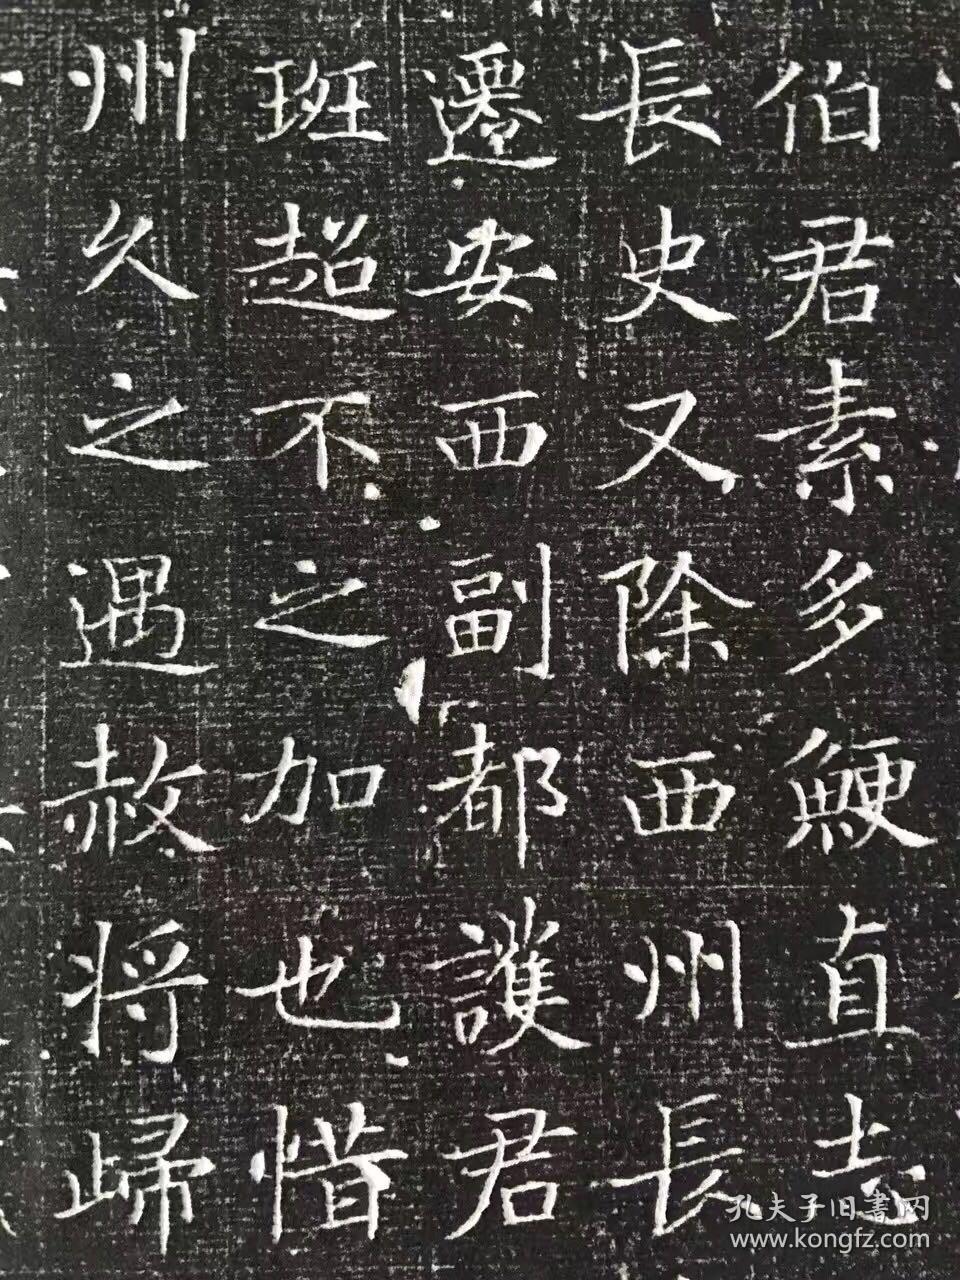 伯君素多鯁直去
長史又除西州長
遷安西副都護君
班超不之加也惜
州久之遇赦將歸
孔夫子旧書网
www.kongfz.com